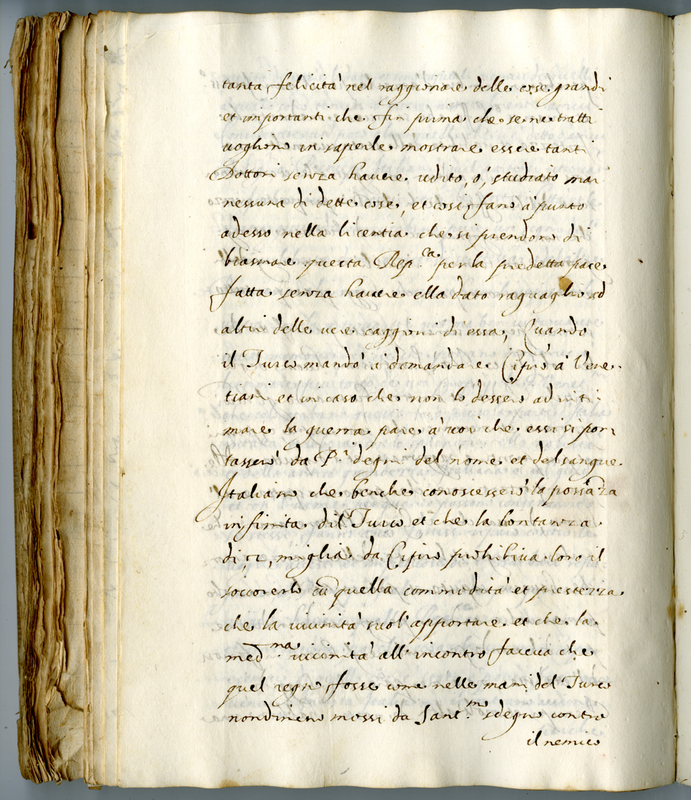 tanta felicità nel raggionare delle cose grandi
et importanti che fin prima che se ne tratti
vogliono in saperle mostrare essere tanti
Dottori senza havere udito, ò, studiato mai
nessuna di dette cose, et così fano à punto
adesso nella licentia che si prendono di
biasmare questa Rep.ca per la predetta pace
fatta senza havere ella dato raguaglio ad
altri delle vere caggioni di essa, Quando
il Turco mandò à domandare Cipro à Vene
tiani et in caso che non lo dessero ad inti
mare la guerra pare à voi che essi si por
tassero da P.i degni del nome et del sangue
Italiano che benche conoscessero la possanza
infinita dil Turco et che la lontanza
di miglia da Cipro prohibiva loro il
soccorerlo cū quella commodità et prestezza
che la vicinità suol'apportare et che la
med.ma vicinità all'incontro faceva che
quel regno fosse come nelle mani del Turco
nondimeno mossi da Sant.mo sdegno contro
il nemico